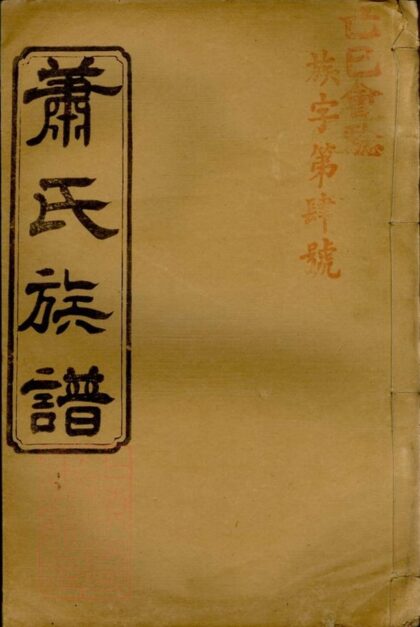 己巳會誌
族字第肆號
蕭氏族譜